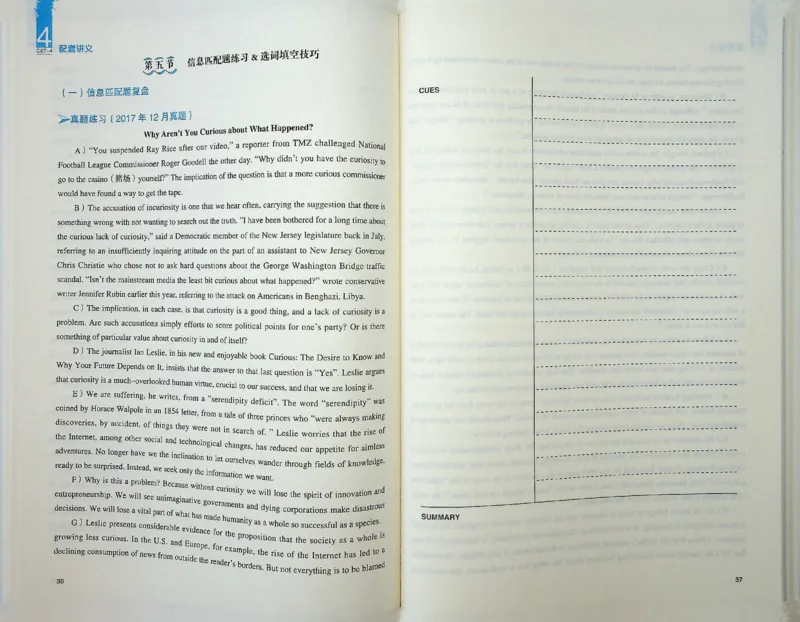 4
CET-4
配套讲义
第五节 信息匹配题练习 & 选词填空技巧
（一）信息匹配题复盘
真题练习（2017 年 12 月真题）
Why Aren't You Curious about What Happened?
A）“You suspended Ray Rice after our video,” a reporter from TMZ challenged National
Football League Commissioner Roger Goodell the other day. “Why didn't you have the curiosity to
go to the casino（赌场）yourself?” The implication of the question is that a more curious commissioner
would have found a way to get the tape.
B）The accusation of incuriosity is one that we hear often, carrying the suggestion that there is
something wrong with not wanting to search out the truth. “I have been bothered for a long time about
the curious lack of curiosity,” said a Democratic member of the New Jersey legislature back in July,
referring to an insufficiently inquiring attitude on the part of an assistant to New Jersey Governor
Chris Christie who chose not to ask hard questions about the George Washington Bridge traffic
scandal. “Isn't the mainstream media the least bit curious about what happened?” wrote conservative
writer Jennifer Rubin earlier this year, referring to the attack on Americans in Benghazi, Libya.
C）The implication, in each case, is that curiosity is a good thing, and a lack of curiosity is a
problem. Are such accusations simply efforts to score political points for one's party? Or is there
something of particular value about curiosity in and of itself?
D）The journalist Ian Leslie, in his new and enjoyable book Curious: The Desire to Know and
Why Your Future Depends on It, insists that the answer to that last question is “Yes”. Leslie argues
that curiosity is a much-overlooked human virtue, crucial to our success, and that we are losing it.
E）We are suffering, he writes, from a “serendipity deficit”. The word “serendipity” was
coined by Horace Walpole in an 1854 letter, from a tale of three princes who “were always making
discoveries, by accident, of things they were not in search of. ” Leslie worries that the rise of
the Internet, among other social and technological changes, has reduced our appetite for aimless
adventures. No longer have we the inclination to let ourselves wander through fields of knowledge,
ready to be surprised. Instead, we seek only the information we want.
F）Why is this a problem? Because without curiosity we will lose the spirit of innovation and
entrepreneurship. We will see unimaginative governments and dying corporations make disastrous
decisions. We will lose a vital part of what has made humanity as a whole so successful as a species.
G）Leslie presents considerable evidence for the proposition that the society as a whole is
growing less curious. In the U.S. and Europe, for example, the rise of the Internet has led to a
declining consumption of news from outside the reader's borders. But not everything is to be blamed
36
CUES
SUMMARY
37